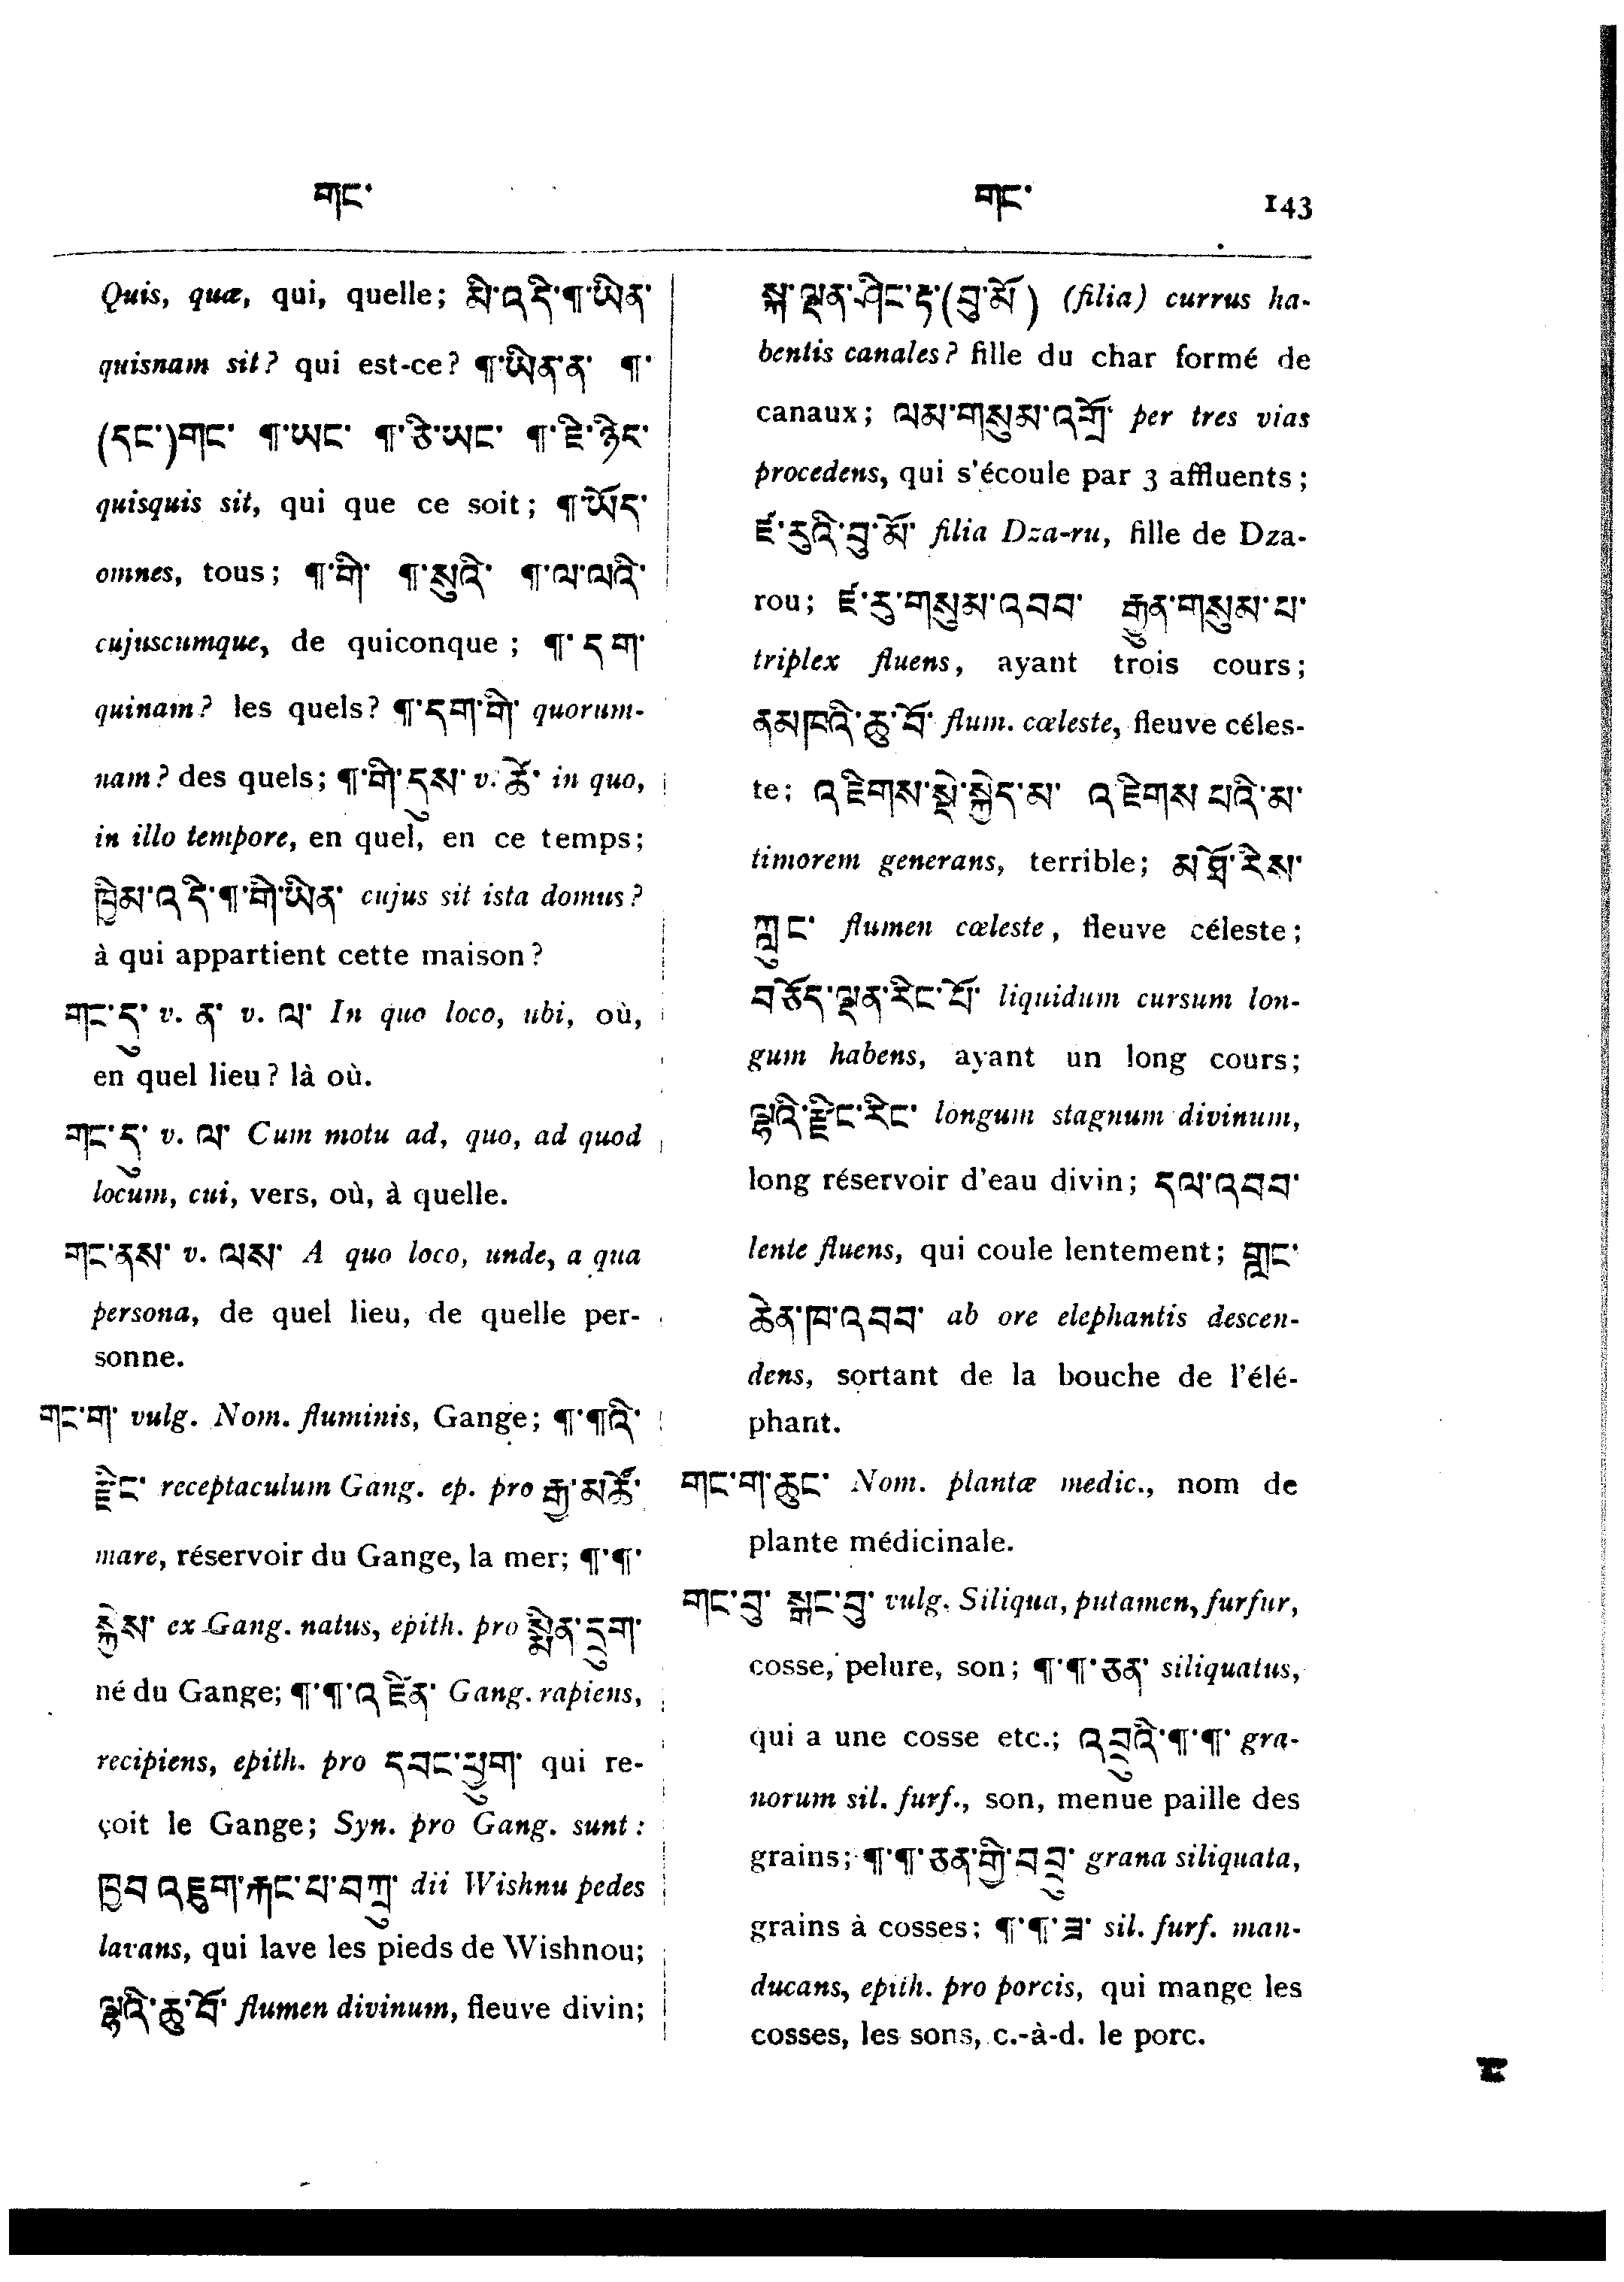 གང་ གང་ 143
Quis, quæ, qui, quelle; མི་འདི་¶་ཡིན་
quisnam sit? qui est-ce? ¶་ཡིན་ན་ ¶་
(དང་)གང་ ¶་ཡང་ ¶་ཅི་ཡང་ ¶་ཇི་ཉེང་
quisquis sit, qui que ce soit; ¶་ཡོད་
omnes, tous; ¶་གི་ ¶་སུའི་ ¶་ལ་ལའི་
cujuscumque, de quiconque; ¶་དག་
quinam? les quels? ¶་དག་གི་ quorum-
nam? des quels; ¶་གི་དུས་ v. ཚེ་ in quo,
in illo tempore, en quel, en ce temps;
ཁྱིམ་འདི་¶་གི་ཡིན་ cujus sit ista domus?
à qui appartient cette maison?
གང་དུ་ v. ན་ v. ལ་ In quo loco, ubi, où,
en quel lieu? là où.
གང་དུ་ v. ལ་ Cum motu ad, quo, ad quod
locum, cui, vers, où, à quelle.
གང་ནས་ v. ལས་ A quo loco, unde, a qua
persona, de quel lieu, de quelle per-
sonne.
གང་ག་ vulg. Nom. fluminis, Gange; ¶་¶འི་
རྫིང་ receptaculum Gang. ep. pro རྒྱ་མཚོ་
mare, réservoir du Gange, la mer; ¶་¶་
སྐྱེས་ ex Gang. natus, epith. pro སྨིན་དྲུག་
né du Gange; ¶་¶་འཛིན་ Gang. rapiens,
recipiens, epith. pro དབང་ཕྱུག་ qui re-
çoit le Gange; Syn. pro Gang. sunt:
ཁྱབ་འཇུག་རྐང་པ་བཀྲུ་ dii Wishnu pedes
lavans, qui lave les pieds de Wishnou;
ལྷའི་ཆུ་བོ་ flumen divinum, fleuve divin;
སྐ་ལྡན་ཤིང་ཏ་(བུ་མོ་) (filia) currus ha-
bentis canales? fille du char formé de
canaux; ལམ་གསུམ་འགྲོ་ per tres vias
procedens, qui s'écoule par 3 affluents;
ཛ་རུའི་བུ་མོ་ filia Dza-ru, fille de Dza-
rou; ཛ་རུ་གསུམ་འབབ་ རྒྱུན་གསུམ་པ་
triplex fluens, ayant trois cours;
ནམཁའི་ཆུ་བོ་ flum. cæleste, fleuve céles-
te; འཇིགས་སྡེ་སྐྱེད་མ་ འཇིགས་པའི་མ་
timorem generans, terrible; མཐོ་རིས་
ཀླུང་ flumen cæleste, fleuve céleste;
བཙོད་ལྡན་རིང་པོ་ liquidum cursum lon-
gum habens, ayant un long cours;
ལྷའི་རྫིང་རིང་ longum stagnum divinum,
long réservoir d'eau divin; དལ་འབབ་
lente fluens, qui coule lentement; གླང་
ཆེན་ཁ་འབབ་ ab ore elephantis descen-
dens, sortant de la bouche de l'élé-
phant.
གང་ག་ཆུང་ Nom. plantæ medic., nom de
plante médicinale.
གང་བུ་ སྒང་བུ་ vulg. Siliqua, putamen, furfur,
cosse, pelure, son; ¶་¶་ཅན་ siliquatus,
qui a une cosse etc.; འབྲུའི་¶་¶་ gra-
norum sil. furf., son, menue paille des
grains; ¶་¶་ཅན་གྱི་འབྲུ་ grana siliquata,
grains à cosses; ¶་¶་ཟ་ sil. furf. man-
ducans, epith. pro porcis, qui mange les
cosses, les sons, c.-à-d. le porc.